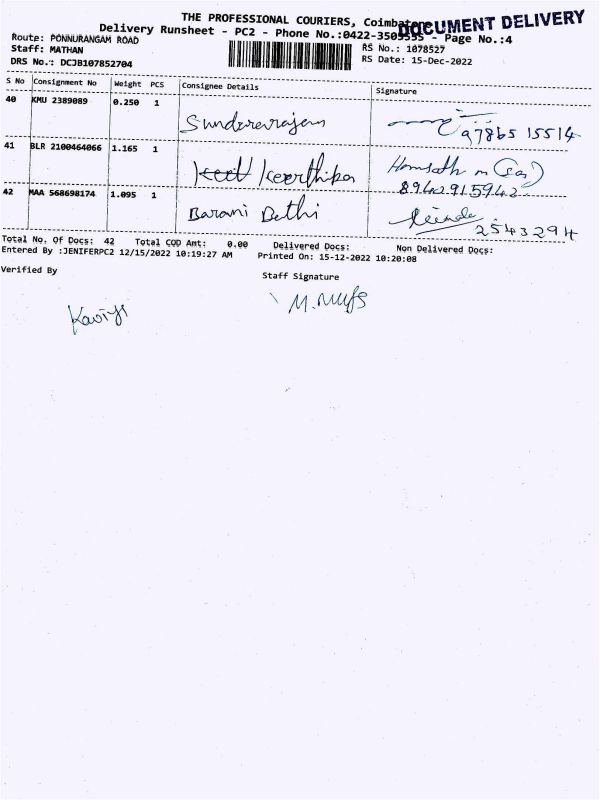 THE PROFESSIONAL COURIERS, Coimbatore
DOCUMENT DELIVERY
Delivery Runsheet - PC2 - Phone No.:0422-3509535 - Page No.:4
Route: PONNURANGAM ROAD
RS No.: 1078527
Staff: MATHAN
RS Date: 15-Dec-2022
DRS No.: DCJB107852704
S No Consignment No Weight PCS Consignee Details Signature
40 KMU 2389089 0.250 1 Sundararajan
97865 15514
41 BLR 2100464066 1.165 1 Keerthika
89402915942
42 MAA 568698174 1.095 1 Barani Dethi
2543294
Total No. Of Docs: 42 Total COD Amt: 0.00 Delivered Docs: Non Delivered Docs:
Entered By :JENIFERPC2 12/15/2022 10:19:27 AM Printed On: 15-12-2022 10:20:08
Verified By Staff Signature
Kaviya